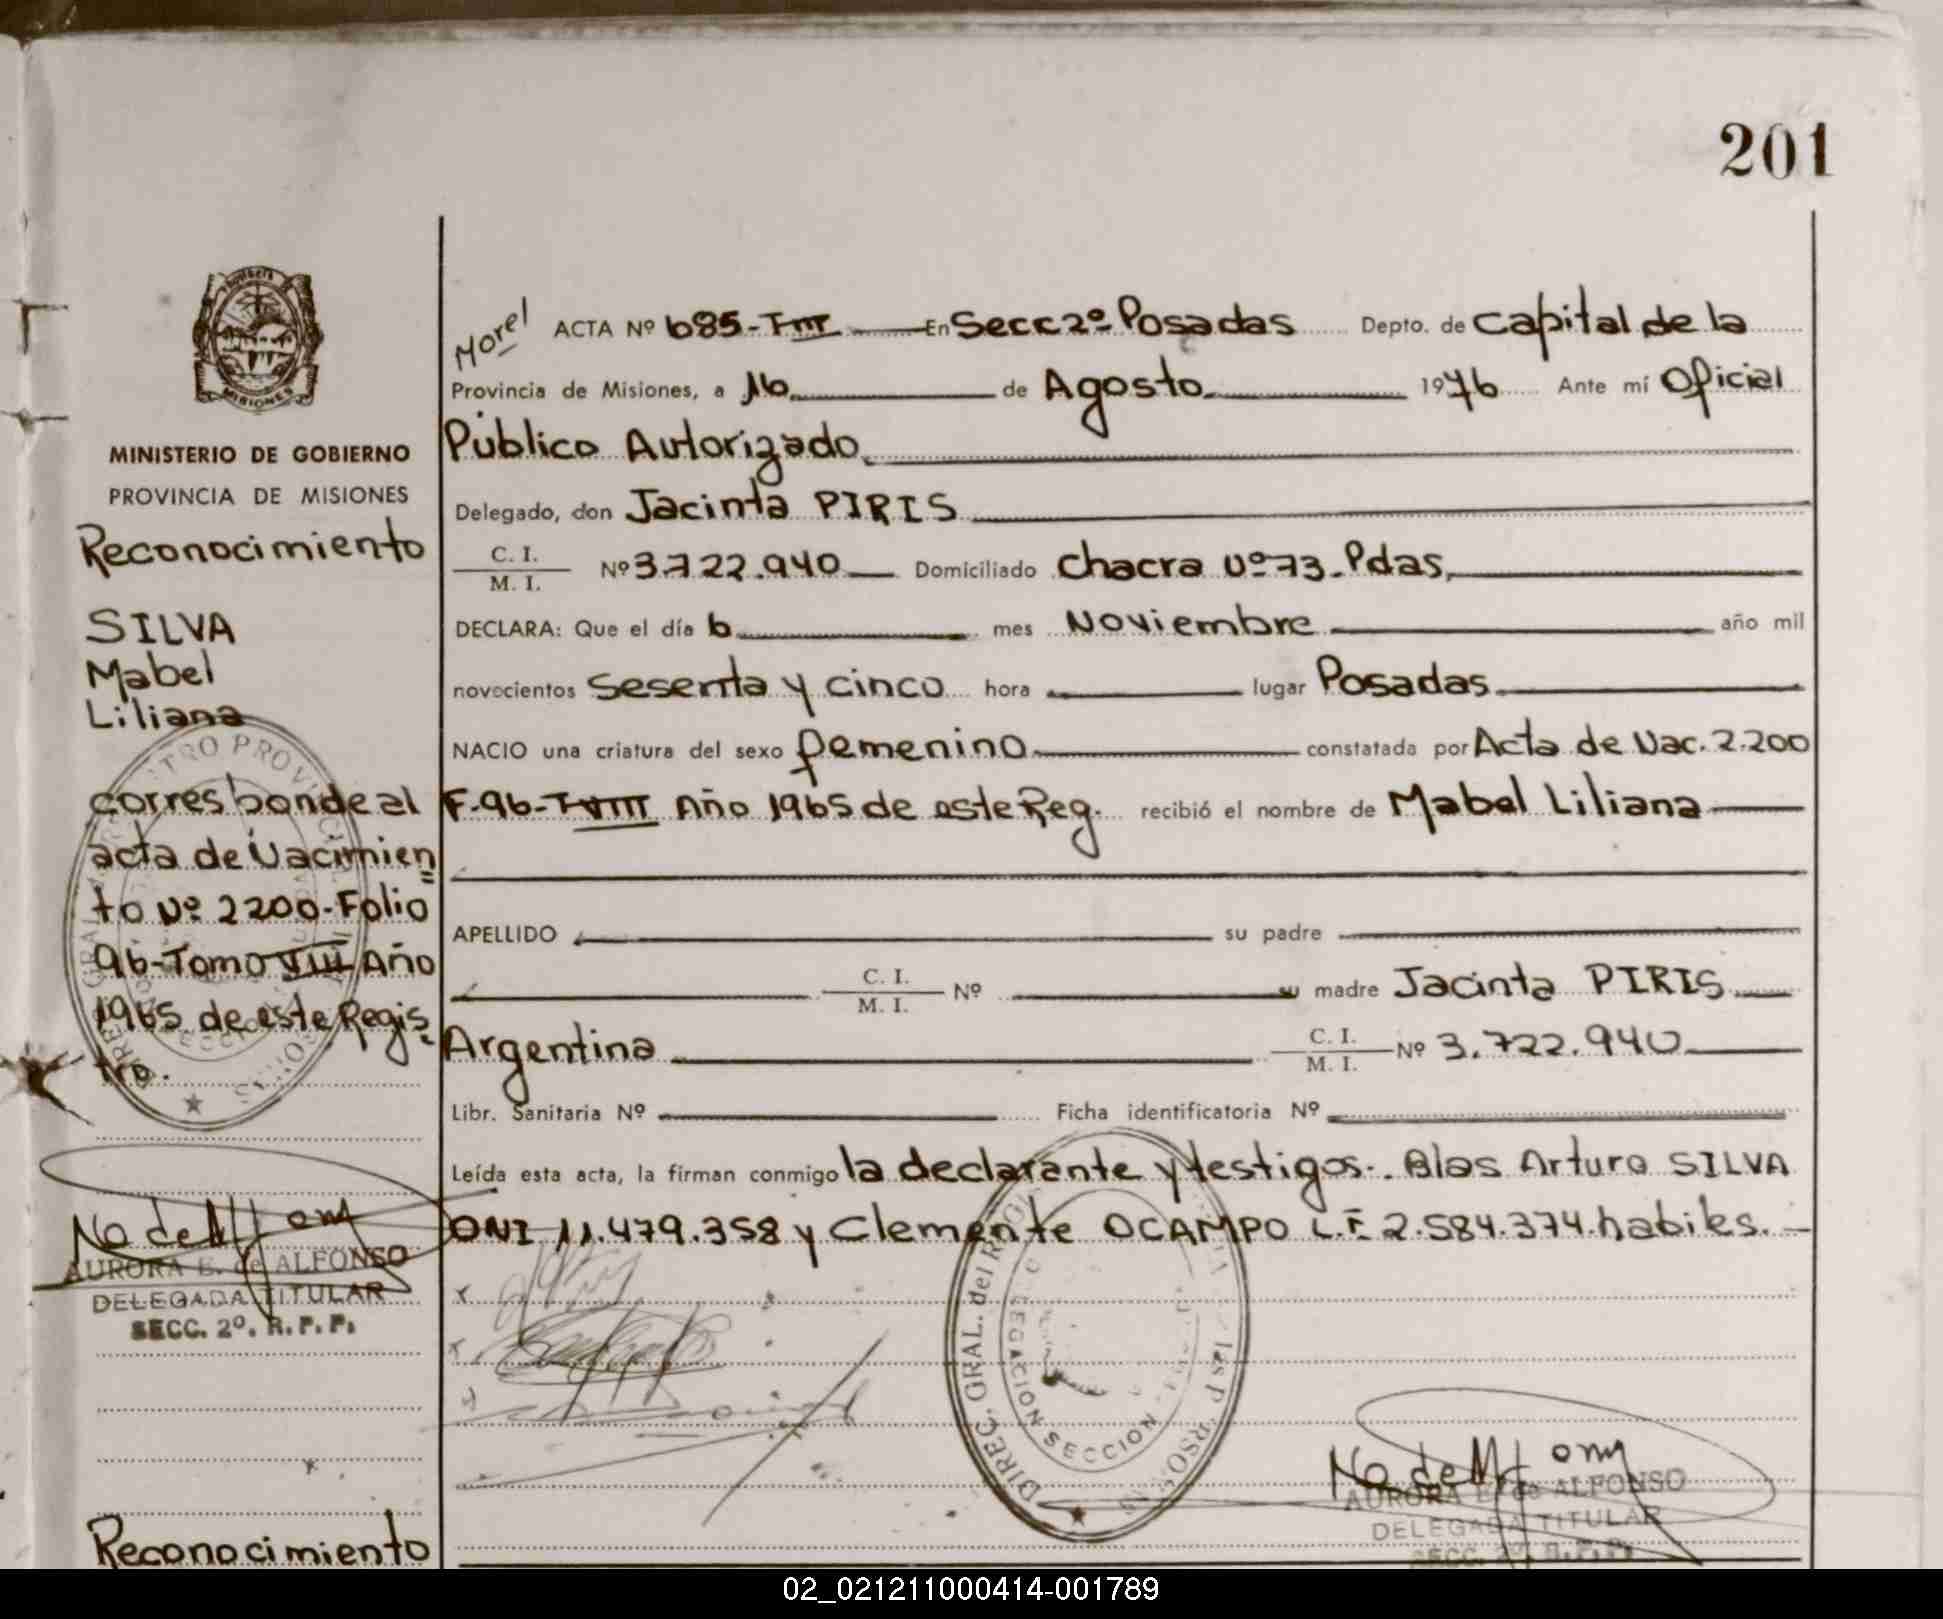 201
MINISTERIO DE GOBIERNO
PROVINCIA DE MISIONES
Reconocimiento
SILVA
Mabel
Liliana
corresbonde al
acta de Nacimien
to Nº 2200-Folio
96-Tomo VIII Año
1965 de este Regis
tro.
AURORA E. de ALFONSO
DELEGADA TITULAR
SECC. 2º. R. P. P.
Reconocimiento
Morel ACTA Nº 685-TIII En Secc 2º Posadas Depto. de Capital de la
Provincia de Misiones, a 16 de Agosto 1976 Ante mí Oficial
Público Autorizado
Delegado, don Jacinta PIRIS
C. I.
M. I. Nº 3.722.940 Domiciliado Chacra Nº 73. Pdas,
DECLARA: Que el día 6 mes Noviembre año mil
novecientos Sesenta y cinco hora lugar Posadas
NACIO una criatura del sexo femenino constatada por Acta de Nac. 2.200
F-96-TVIII Año 1965 de este Reg. recibió el nombre de Mabel Liliana
APELLIDO su padre
C. I.
M. I. Nº su madre Jacinta PIRIS
Argentina C. I.
M. I. Nº 3.722.940
Libr. Sanitaria Nº Ficha identificatoria Nº
Leída esta acta, la firman conmigo la declarante y testigos. Blas Arturo SILVA
DNI 11.479.358 y Clemente OCAMPO L.E 2.584.374. habiles.
DIREC. GRAL. del
DELEGACION SECCION
AURORA E. de ALFONSO
DELEGADA TITULAR
SECC. 2º. R. P. P.
02_021211000414-001789